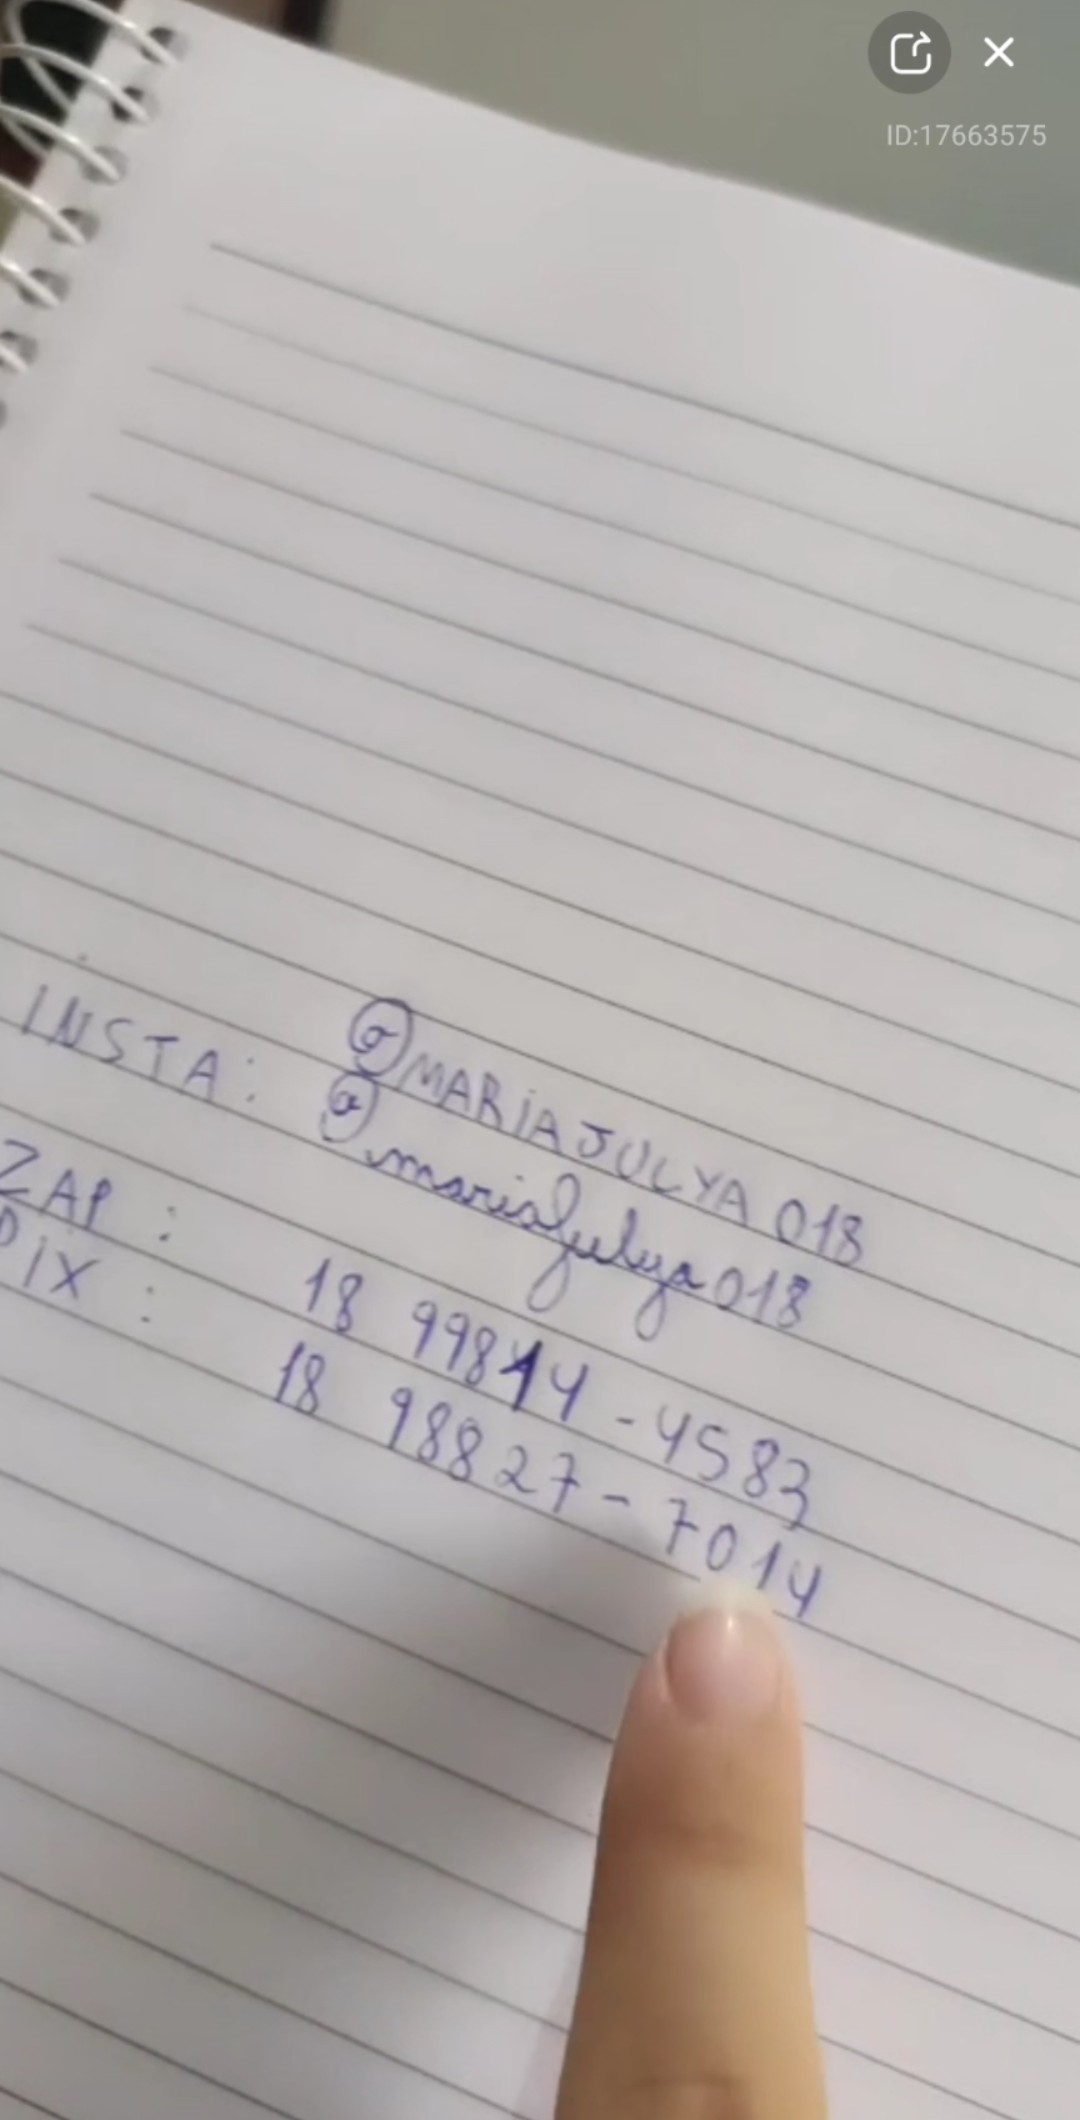 ID:17663575
INSTA: @MARIAJULYA018
@mariajulya018
ZAP: 18 99814-4583
PIX: 18 98827-7014